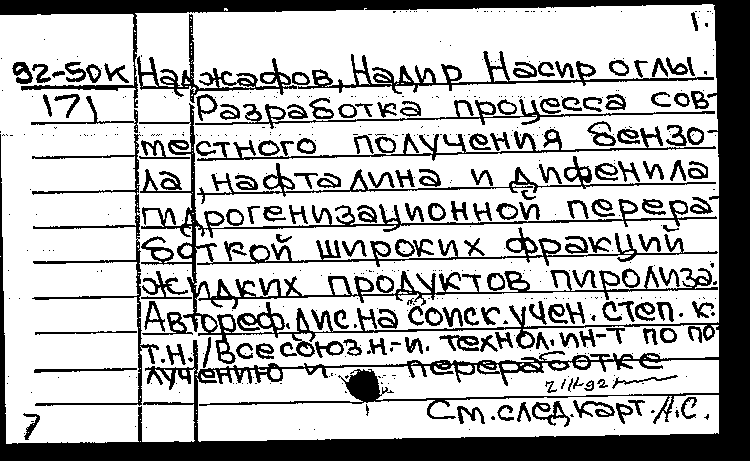 1.
92-50К Наджафов, Надир Насир оглы.
171 Разработка процесса сов-
местного получения бензо-
ла, нафталина и дифенила
гидрогенизационной перера-
боткой широких фракций
жидких продуктов пиролиза:
Автореф.дис.на соиск.учен.степ.к.
т.н./Всесоюз.н.-и. технол.ин-т по по-
лучению и переработке
См.след.карт. А.С.
7